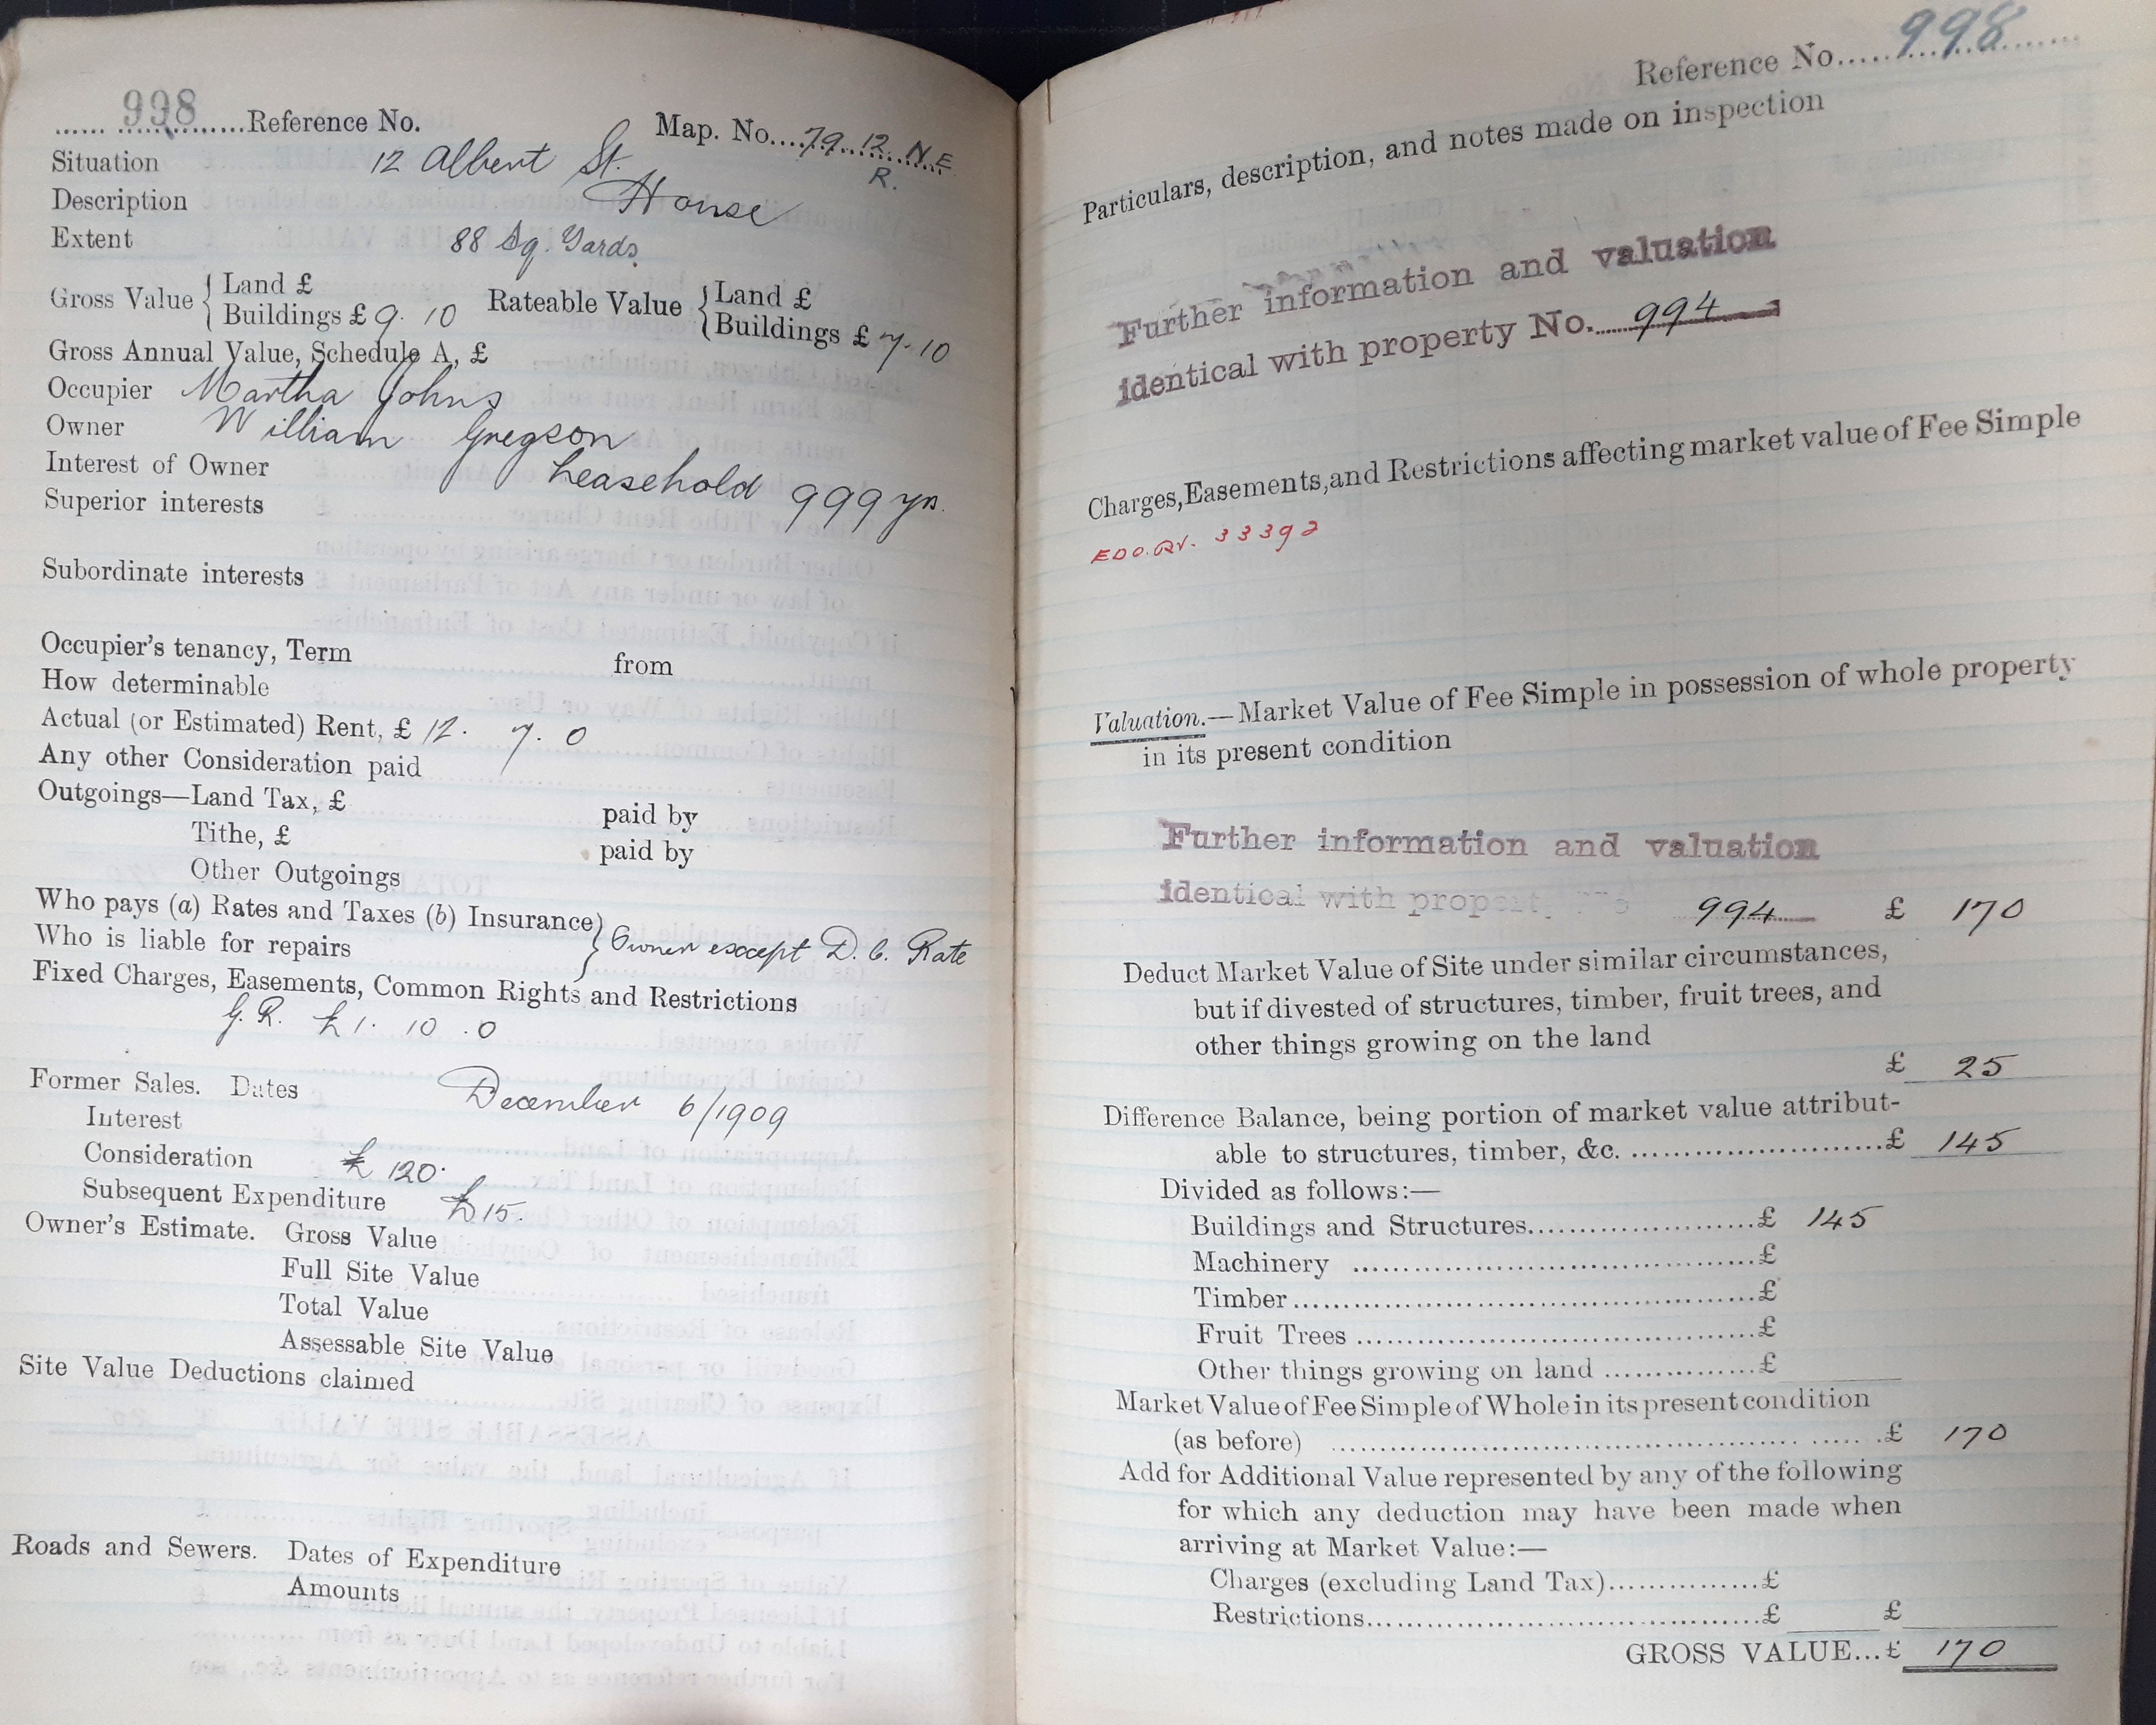 998 Reference No. Map. No. 79.12. N.E
R.
Situation 12 Albert St.
Description House
Extent 88 Sq. Yards.
Gross Value { Land £
Buildings £ 9. 10
Rateable Value { Land £
Buildings £ 7. 10
Gross Annual Value, Schedule A, £
Occupier Martha Johns
Owner William Gregson
Interest of Owner Leasehold 999 yrs.
Superior interests
Subordinate interests
Occupier's tenancy, Term from
How determinable
Actual (or Estimated) Rent, £ 12. 7. 0
Any other Consideration paid
Outgoings—Land Tax, £ paid by
Tithe, £ paid by
Other Outgoings
Who pays (a) Rates and Taxes (b) Insurance
Who is liable for repairs } Owner except D. C. Rate
Fixed Charges, Easements, Common Rights and Restrictions
G. R. £1. 10. 0
Former Sales. Dates December 6/1909
Interest
Consideration £120.
Subsequent Expenditure £15.
Owner's Estimate. Gross Value
Full Site Value
Total Value
Assessable Site Value
Site Value Deductions claimed
Roads and Sewers. Dates of Expenditure
Amounts
Reference No. 998
Particulars, description, and notes made on inspection
Further information and valuation
identical with property No. 994
Charges, Easements, and Restrictions affecting market value of Fee Simple
33392
Valuation.—Market Value of Fee Simple in possession of whole property
in its present condition
Further information and valuation
identical with propert 994 £ 170
Deduct Market Value of Site under similar circumstances,
but if divested of structures, timber, fruit trees, and
other things growing on the land
£ 25
Difference Balance, being portion of market value attribut-
able to structures, timber, &c. £ 145
Divided as follows:—
Buildings and Structures £ 145
Machinery £
Timber £
Fruit Trees £
Other things growing on land £
Market Value of Fee Simple of Whole in its present condition
(as before) £ 170
Add for Additional Value represented by any of the following
for which any deduction may have been made when
arriving at Market Value:—
Charges (excluding Land Tax) £
Restrictions £ £
GROSS VALUE...£ 170